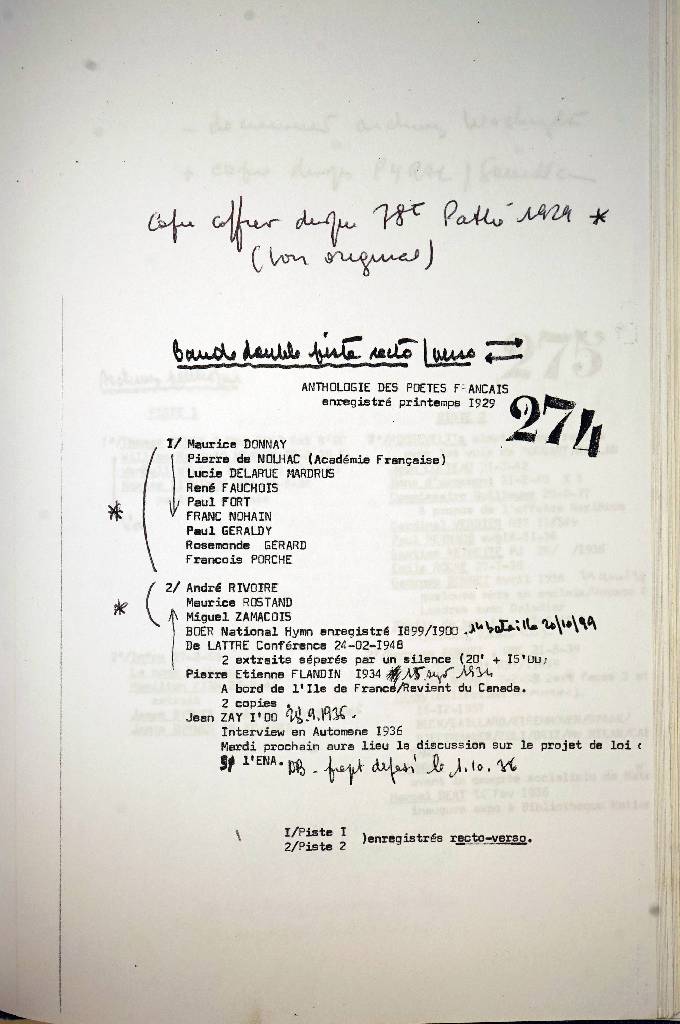 Copie coffret disque 78t Pathé 1929 *
(son original)
Bande double piste recto/verso
ANTHOLOGIE DES POETES F ANCAIS
enregistré printemps I929
274
I/ Maurice DONNAY
Pierre de NOLHAC (Académie Française)
Lucie DELARUE MARDRUS
René FAUCHOIS
Paul FORT
*
FRANC NOHAIN
Paul GERALDY
Rosemonde GERARD
Francois PORCHE
2/ André RIVOIRE
Maurice ROSTAND
*
Miguel ZAMACOIS
BOER National Hymn enregistré I899/I900 . 1re bataille 20/10/99
De LATTRE Conférence 24-02-I948
2 extraits séparés par un silence (20' + I5'00;
Pierre Etienne FLANDIN I934 15 sept 1934
A bord de l'Ile de France/Revient du Canada.
2 copies
Jean ZAY I'00 28.9.1936.
Interview en Automne I936
Mardi prochain aura lieu la discussion sur le projet de loi
l'ENA. DB - projet déposé le 1.10.36
I/Piste I
2/Piste 2
)enregistrés recto-verso.